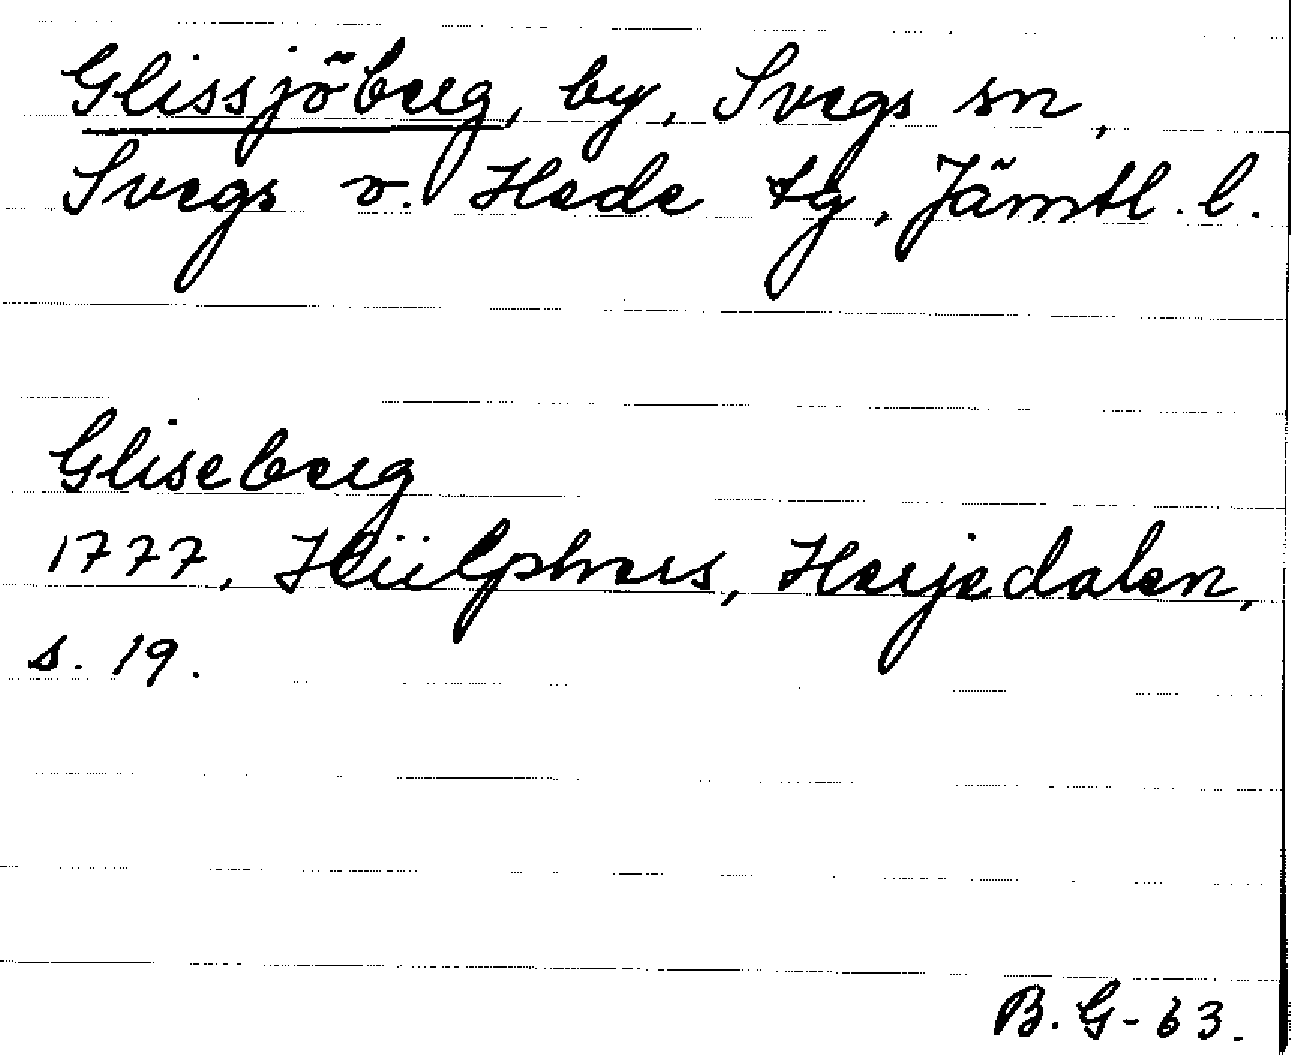 Glissjöberg, by, Svegs sn,
Svegs o. Hede tg, Jämtl. l.
Gliseberg
1777, Hülphers, Herjedalen,
s. 19.
B. G-63.